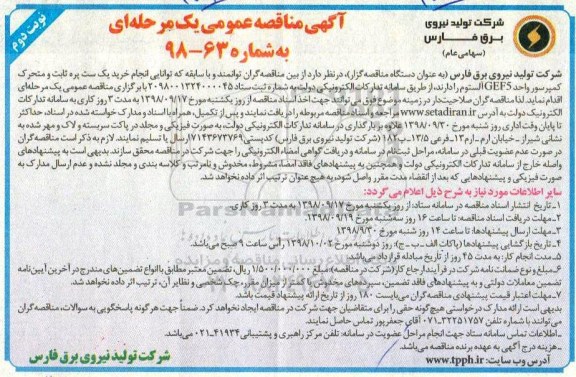 نوبت دوم
آگهی مناقصه عمومی یک مرحله‌ای
به شماره ۶۳-۹۸
شرکت تولید نیروی برق فارس
(سهامی عام)
شرکت تولید نیروی برق فارس (به عنوان دستگاه مناقصه‌گزار)، در نظر دارد از بین مناقصه‌گران توانمند و با سابقه که توانایی انجام خرید یک ست پره ثابت و متحرک
کمپرسور واحد GEF5 آلستوم را دارند، از طریق سامانه تدارکات الکترونیکی دولت به شماره ثبت ستاد ۲۰۹۸۰۰۱۳۲۴۰۰۰۰۴۵ با برگزاری مناقصه عمومی یک مرحله‌ای
اقدام نماید. لذا مناقصه‌گران صلاحیت‌دار در زمینه موضوع فوق می‌توانند جهت اخذ اسناد مناقصه از روز یکشنبه مورخ ۱۳۹۸/۰۹/۱۷ به مدت ۳ روز کاری به سامانه تدارکات
الکترونیکی دولت به آدرس www.setadiran.ir مراجعه و اسناد مناقصه مربوطه را دریافت نمایند و پس از تکمیل، همراه با اسناد و مدارک خواسته شده در اسناد، حداکثر
تا پایان وقت اداری روز شنبه مورخ ۱۳۹۸/۰۹/۳۰ علاوه بر بارگذاری در سامانه تدارکات الکترونیکی دولت به صورت فیزیکی و مجلد در پاکت سربسته و لاک و مهر شده به
نشانی شیراز- خیابان ارم- ارم ۱۳- فرعی ۱۳/۵- پ ۱۸۷ (شرکت تولید نیروی برق فارس) کدپستی ۷۱۴۳۶۷۳۷۶۹ ارسال یا تسلیم نمایند. لازم به ذکر است مناقصه‌گران
در صورت عدم عضویت قبلی در سامانه، مراحل ثبت‌نام در سامانه و دریافت گواهی امضای الکترونیکی را جهت شرکت در مناقصه محقق سازند. بدیهی است به پیشنهادهای
واصله خارج از سامانه تدارکات الکترونیکی دولت و همچنین به پیشنهادهای فاقد امضا، مشروط، مخدوش و نامرتب و کلاسه بندی و مجلد نشده و عدم ارسال مدارک به
صورت فیزیکی و پیشنهادهایی که بعد از انقضاء مدت مقرر واصل شود به هیچ عنوان ترتیب اثر داده نخواهد شد.
سایر اطلاعات مورد نیاز به شرح ذیل اعلام می‌گردد:
۱- تاریخ انتشار اسناد مناقصه در سامانه ستاد: از روز یکشنبه مورخ ۱۳۹۸/۰۹/۱۷ به مدت ۳ روز کاری.
۲- مهلت دریافت اسناد مناقصه: تا ساعت ۱۶ روز سه‌شنبه مورخ ۱۳۹۸/۰۹/۱۹
۳- مهلت ارسال پیشنهادها: تا ساعت ۱۴ روز شنبه مورخ ۱۳۹۸/۹/۳۰
۴- تاریخ بازگشایی پیشنهادها (پاکات الف- ب- ج): روز دوشنبه مورخ ۱۳۹۸/۱۰/۰۲ رأس ساعت ۹ صبح می‌باشد.
۵- مدت انجام کار: به مدت ۴۵ روز از تاریخ مبادله قرارداد می‌باشد.
۶- مبلغ و نوع ضمانت نامه شرکت در فرآیند ارجاع کار (شرکت در مناقصه): مبلغ ۱/۵۰۰/۰۰۰/۰۰۰ ریال، تضمین معتبر مطابق با انواع تضمین‌های مندرج در آخرین آیین‌نامه
تضمین معاملات دولتی و به پیشنهادهای فاقد تضمین، سپرده‌های مخدوش، کمتر از میزان مقرر، چک شخصی و نظایر آن، ترتیب اثر داده نخواهد شد.
۷- مهلت اعتبار قیمت پیشنهادی مناقصه‌گران می‌بایست ۱۸۰ روز از تاریخ ارائه پیشنهاد قیمت باشد.
بدیهی است ارائه مدارک درخواستی هیچ‌گونه حقی را برای متقاضیان جهت شرکت در مناقصه ایجاد نخواهد کرد. ضمناً جهت هر گونه پاسخگویی به سوالات، مناقصه‌گران
می‌توانند با شماره تلفن ۳۲۲۵۱۷۵۷-۰۷۱ آقای جعفرپور تماس حاصل نمایند.
- اطلاعات تماس سامانه ستاد جهت انجام مراحل عضویت در سامانه: تلفن مرکز راهبری و پشتیبانی ۴۱۹۳۴-۰۲۱ می‌باشد.
- هزینه درج آگهی به عهده برنده مناقصه می‌باشد.
آدرس وب سایت: www.tpph.ir
شرکت تولید نیروی برق فارس